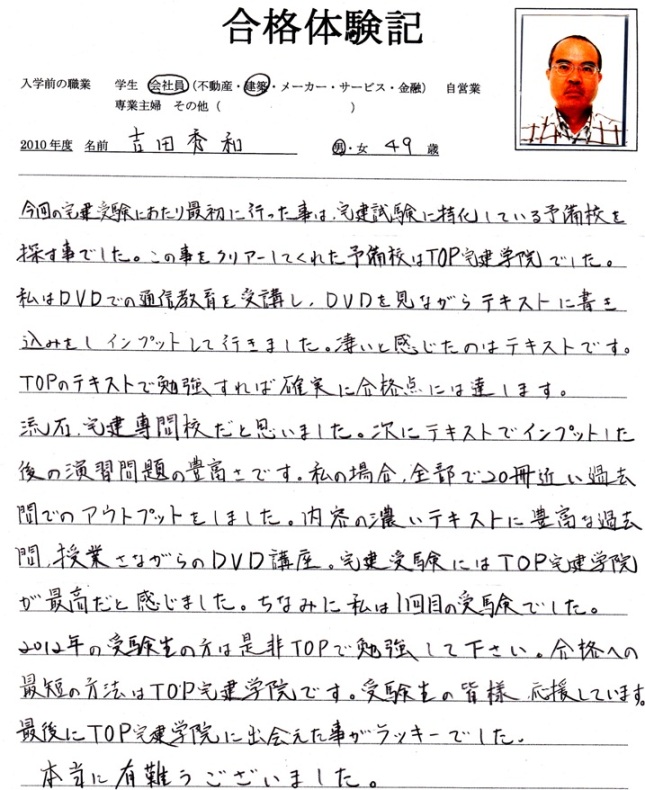 合格体験記
入学前の職業 学生 会社員（不動産・建築・メーカー・サービス・金融） 自営業
専業主婦 その他（ ）
2010年度 名前 吉田秀和 男・女 49歳
今回の宅建受験にあたり最初に行った事は、宅建試験に特化している予備校を
探す事でした。この事をクリアーしてくれた予備校はTOP宅建学院でした。
私はDVDでの通信教育を受講し、DVDを見ながらテキストに書き
込みをしインプットして行きました。凄いと感じたのはテキストです。
TOPのテキストで勉強すれば確実に合格点には達します。
流石、宅建専門校だと思いました。次にテキストでインプットした
後の演習問題の豊富さです。私の場合、全部で20冊近い過去
問でのアウトプットをしました。内容の濃いテキストに豊富な過去
問、授業さながらのDVD講座。宅建受験にはTOP宅建学院
が最高だと感じました。ちなみに私は1回目の受験でした。
2012年の受験生の方は是非TOPで勉強して下さい。合格への
最短の方法はTOP宅建学院です。受験生の皆様、応援しています。
最後にTOP宅建学院に出会えた事がラッキーでした。
本当に有難うございました。